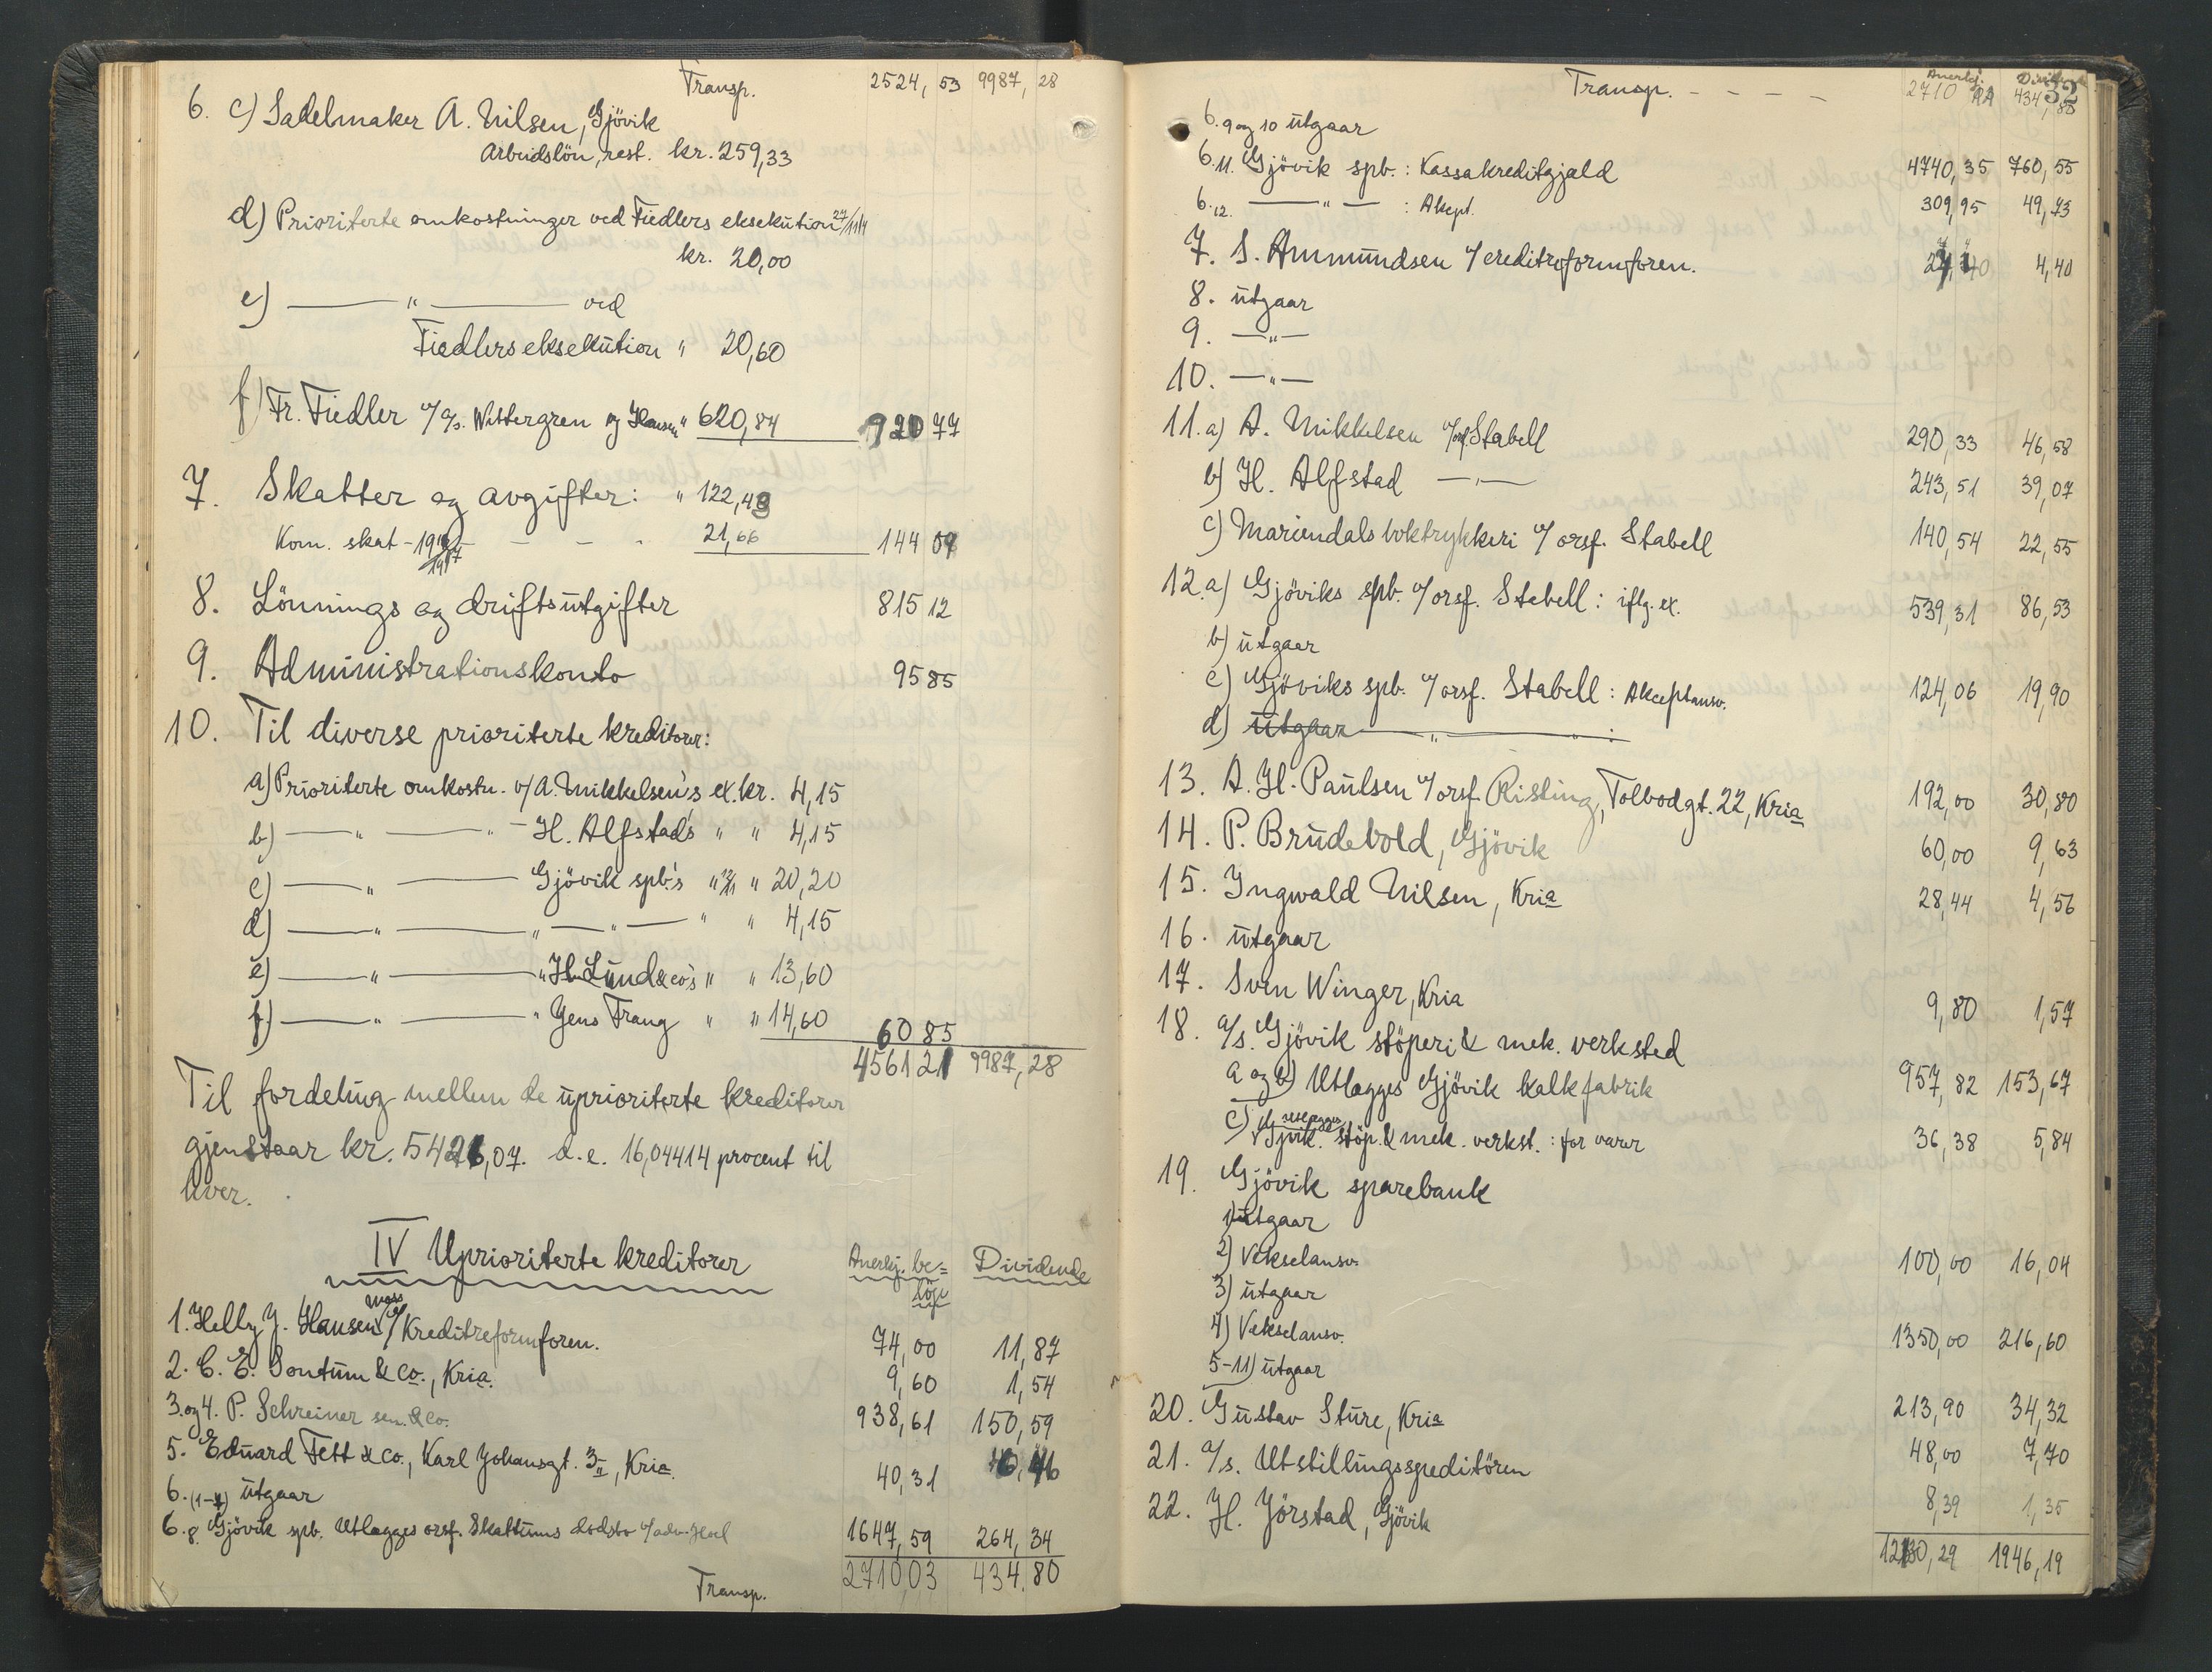 Transp. 2524,53 9987,28
6. c) Sadelmaker A. Nilsen, Gjövik
Arbeidslön, rest. kr. 259,33
d) Prioriterte omkostninger ved Fiedlers eksekution 27/11 14
kr. 20,00
e) — " — ved
Fiedlers eksekution " 20,60
f) Fr. Fiedler v/ a/s. Wittergren og Hansen " 620,84 920 77
7. Skatter og avgifter: " 122,43
Kom. skat - 1917 - - - 21,66 144 09
8. Lönnings og driftsutgifter 815 12
9. Administrationskonto 95 85
10. Til diverse prioriterte kreditorer:
a) Prioriterte omkostn. v/ A. Mikkelsen's ex. kr. 4,15
b) — " — " — H. Alfstad's " " 4,15
c) — " — Gjövik spb's " " 20,20
d) — " — " — " — " " 4,15
e) — " — " H. Lund & co's " " 13,60
f) — " — " Jens Trang " " 14,60 60 85
4561 21 9987,28
Til fordeling mellem de uprioriterte kreditorer
gjenstaar kr. 5426,07. d.e. 16,04414 procent til
hver.
IV Uprioriterte kreditorer Anerkj. be= Dividende
löp
1. Helly J. Hansen, Moss v/ Kreditreformforen. 74,00 11,87
2. C. E. Sontum & Co., Kria. 9,60 1,54
3. og 4. P. Schreiner sen. & Co. 938,61 150,59
5. Eduard Fett & Co., Karl Johansgt. 3, Kria. 40,31 6,46
6. (1-7) utgaar
6. 8. Gjövik spb. Utlagges orsf. Skattums dödsbo v/ adv. Hoel 1647,59 264,34
Transp. 2710,03 434,80
32
Anerkj. Divid.
Transp. - - - - 2710 434,80
6. 9 og 10 utgaar
6. 11. Gjövik spb.: Kassakreditgjæld 4740,35 760,55
6. 12. — " — : Aksept. 309,95 49,73
7. S. Ammundsen v/ creditreformforen. 4,40
8. utgaar
9. — " —
10. — " —
11. a) A. Mikkelsen v/ orsf. Stabell 290,33 46,58
b) H. Alfstad — " — 243,51 39,07
c) Mariendals boktrykkeri v/ orsf. Stabell 140,54 22,55
12. a) Gjöviks spb. v/ orsf. Stabell: iflg. ex. 539,31 86,53
b) utgaar
c) Gjöviks spb. v/ orsf. Stabell: Akceptansv. 124,06 19,90
d) utgaar — " — " :
13. A. H. Paulsen v/ orsf. Risting, Tolbodgt. 22, Kria 192,00 30,80
14. P. Brudebold, Gjövik 60,00 9,63
15. Ingwald Nilsen, Kria 28,44 4,56
16. utgaar
17. Sven Winger, Kria 9,80 1,57
18. a/s. Gjövik stöperi & mek. verksted
a og b) Utlagges Gjövik kalkfabrik 957,82 153,67
c) utlægges Gjvik. stöp. & mek. verkst.: for varer 36,38 5,84
19. Gjövik sparebank
1) utgaar
2) Vekselansv. 100,00 16,04
3) utgaar
4) Vekselansv. 1350,00 216,60
5-11) utgaar
20. Gustav Sture, Kria 213,90 34,32
21. a/s. Utstillingsspeditören 48,00 7,70
22. H. Jörstad, Gjövik 8,39 1,35
12130,29 1946,19